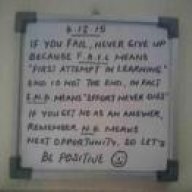 6.12.15
IF YOU FAIL, NEVER GIVE UP
BECAUSE F.A.I.L MEANS
"FIRST ATTEMPT IN LEARNING"
END IS NOT THE END, IN FACT
E.N.D MEANS "EFFORT NEVER DIES"
IF YOU GET NO AS AN ANSWER,
REMEMBER N.O MEANS
NEXT OPPORTUNITY. SO LET'S
BE POSITIVE